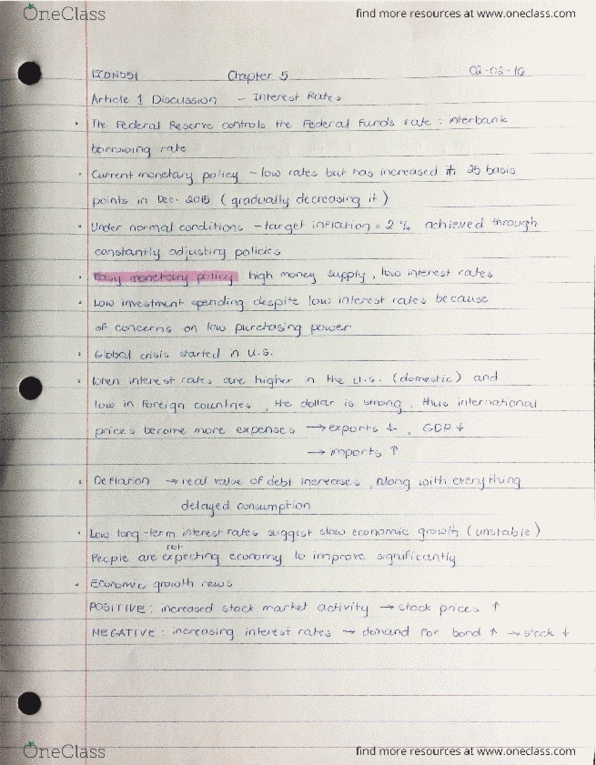 OneClass
find more resources at www.oneclass.com
ECON051 Chapter 5 02-02-16
Article 1 Discussion - Interest Rates
• The Federal Reserve controls the Federal Funds rate : interbank
borrowing rate
• Current monetary policy - low rates but has increased 25 basis
points in Dec. 2015 ( gradually decreasing it )
• Under normal conditions - target inflation = 2 % achieved through
constantly adjusting policies
• Easy monetary policy high money supply, low interest rates
• Low investment spending despite low interest rates because
of concerns on low purchasing power
• Global crisis started in U.S.
• When interest rates are higher in the U.S. (domestic) and
low in foreign countries, the dollar is strong, thus international
prices become more expenses → exports ↓, GDP ↓
→ imports ↑
• Deflation → real value of debt increases, along with everything
delayed consumption
• Low long-term interest rates suggest slow economic growth (unstable)
People are not expecting economy to improve significantly
• Economic growth news
POSITIVE : increased stock market activity → stock prices ↑
NEGATIVE : increasing interest rates → demand for bond ↑ → stock ↓
OneClass
find more resources at www.oneclass.com